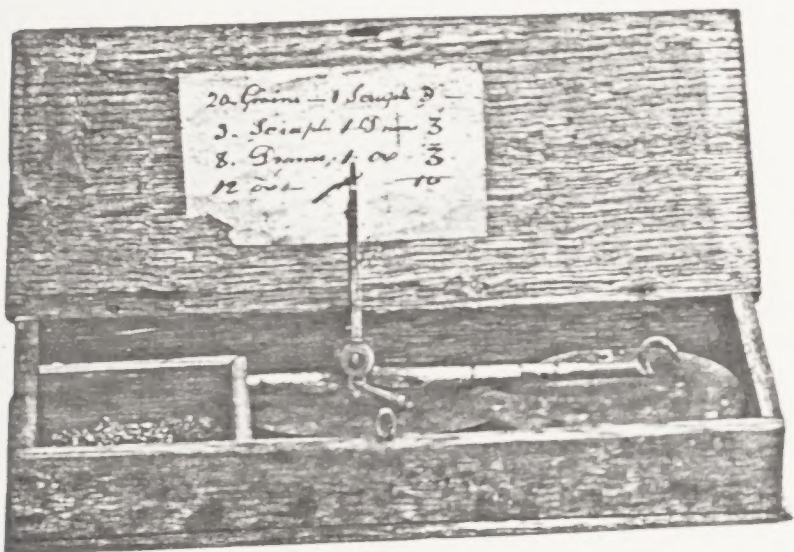 20. Grains — 1 Scruple ℈ —
3. Scrupl 1 Dram ʒ
8. Drams, 1 oz ℥
12 ozs